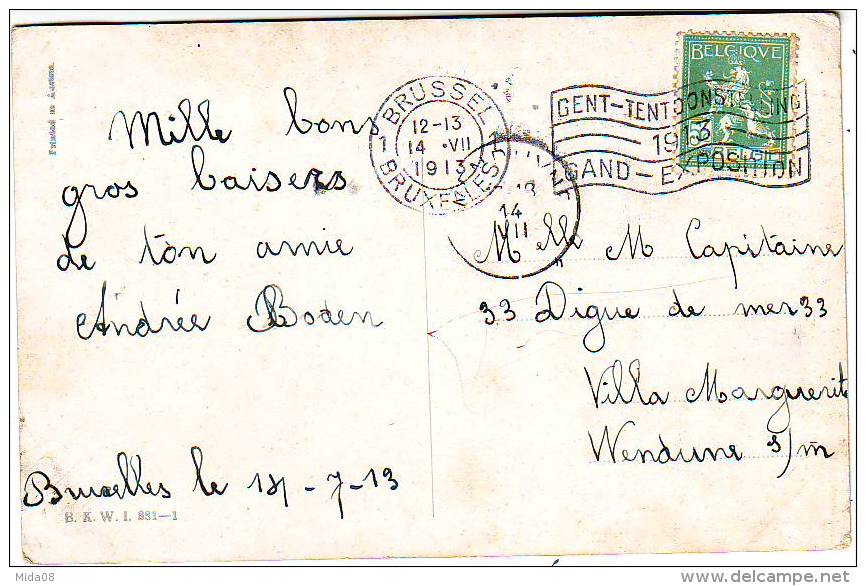 BELGIQUE
BRUSSEL
1 12-13 1
14 ·VII
1913
BRUXELLES
GENT-TENTOONSTELLING
1913
GAND-EXPOSITION
14
VII
Mille bons
gros baisers
de ton amie
Andrée Boden
Bruxelles le 14-7-13
B. K. W. I. 881-1
Melle M Capitaine
33 Digue de mer 33
Villa Marguerit
Wendune s/m
Printed in Austria.
Mida08
delcampe.net